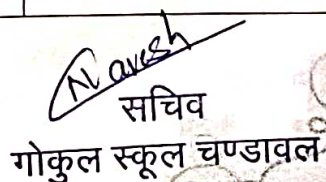 Naresh
सचिव
गोकुल स्कूल चण्डावल